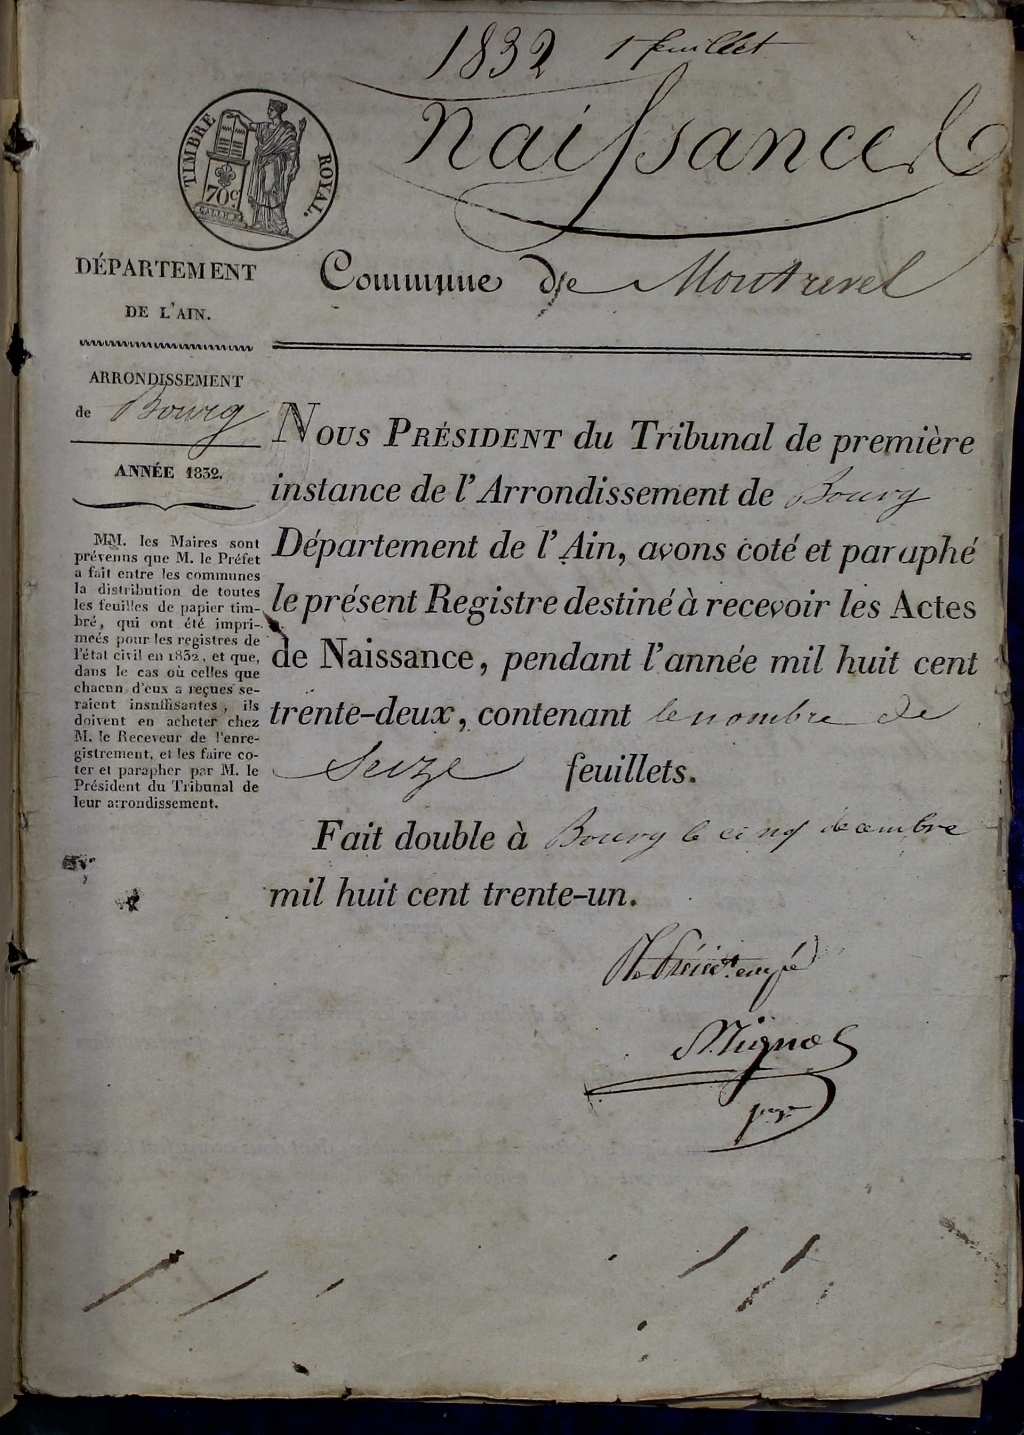 1832 1 feuillet
Naissances
TIMBRE ROYAL.
70c.
GALLIE
DÉPARTEMENT
DE L'AIN.
Commune de Montrevel
ARRONDISSEMENT
de Bourg
ANNÉE 1832.
MM. les Maires sont
prévenus que M. le Préfet
a fait entre les communes
la distribution de toutes
les feuilles de papier tim-
bré, qui ont été impri-
meés pour les registres de
l'état civil en 1832, et que,
dans le cas où celles que
chacun d'eux a reçues se-
raient insuffisantes, ils
doivent en acheter chez
M. le Receveur de l'enre-
gistrement, et les faire co-
ter et parapher par M. le
Président du Tribunal de
leur arrondissement.
NOUS PRÉSIDENT du Tribunal de première
instance de l'Arrondissement de Bourg
Département de l'Ain, avons coté et paraphé
le présent Registre destiné à recevoir les Actes
de Naissance, pendant l'année mil huit cent
trente-deux, contenant le nombre de
Seize feuillets.
Fait double à Bourg le cinq décembre
mil huit cent trente-un.